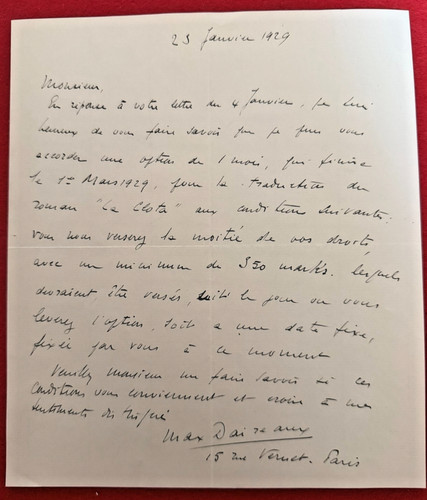 23 Janvier 1929
Monsieur,
En réponse à votre lettre du 4 Janvier, je suis
heureux de vous faire savoir que je puis vous
accorder une option de 1 mois, qui finira
le 1er Mars 1929, pour la traduction du
roman "La Clota" aux conditions suivantes:
vous nous verserez la moitié de vos droits,
avec un minimum de 350 marks. lesquels
devraient, être versés, soit le jour où vous
leverez l'option, soit à une date fixe,
fixée par vous à ce moment
Veuillez monsieur me faire savoir si ces
conditions vous conviennent et croire à mes
sentiments
Max Daireaux
15 rue Vernet. Paris